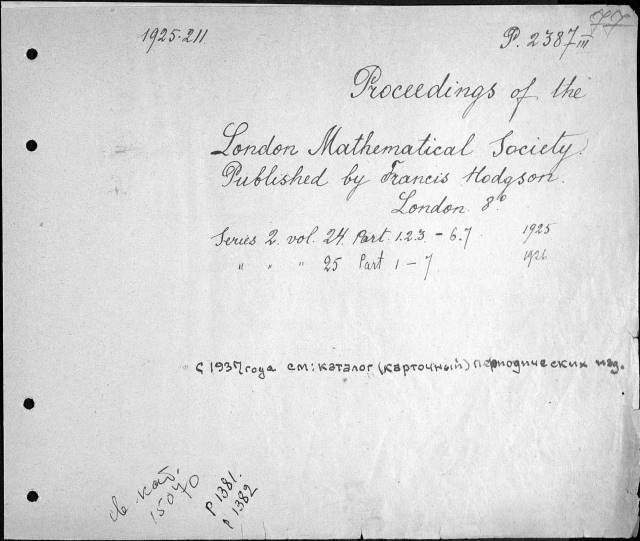 1925·211
P. 2387 III
Proceedings of the
London Mathematical Society.
Published by Francis Hodgson.
London 8°
Series 2. vol. 24. Part. 1.2.3. – 6.7 1925
" " " 25 Part 1 – 7 1926
С 1937 года см: каталог (карточный) периодических изд.
св. кат.
15040
P 1381.
P 1382